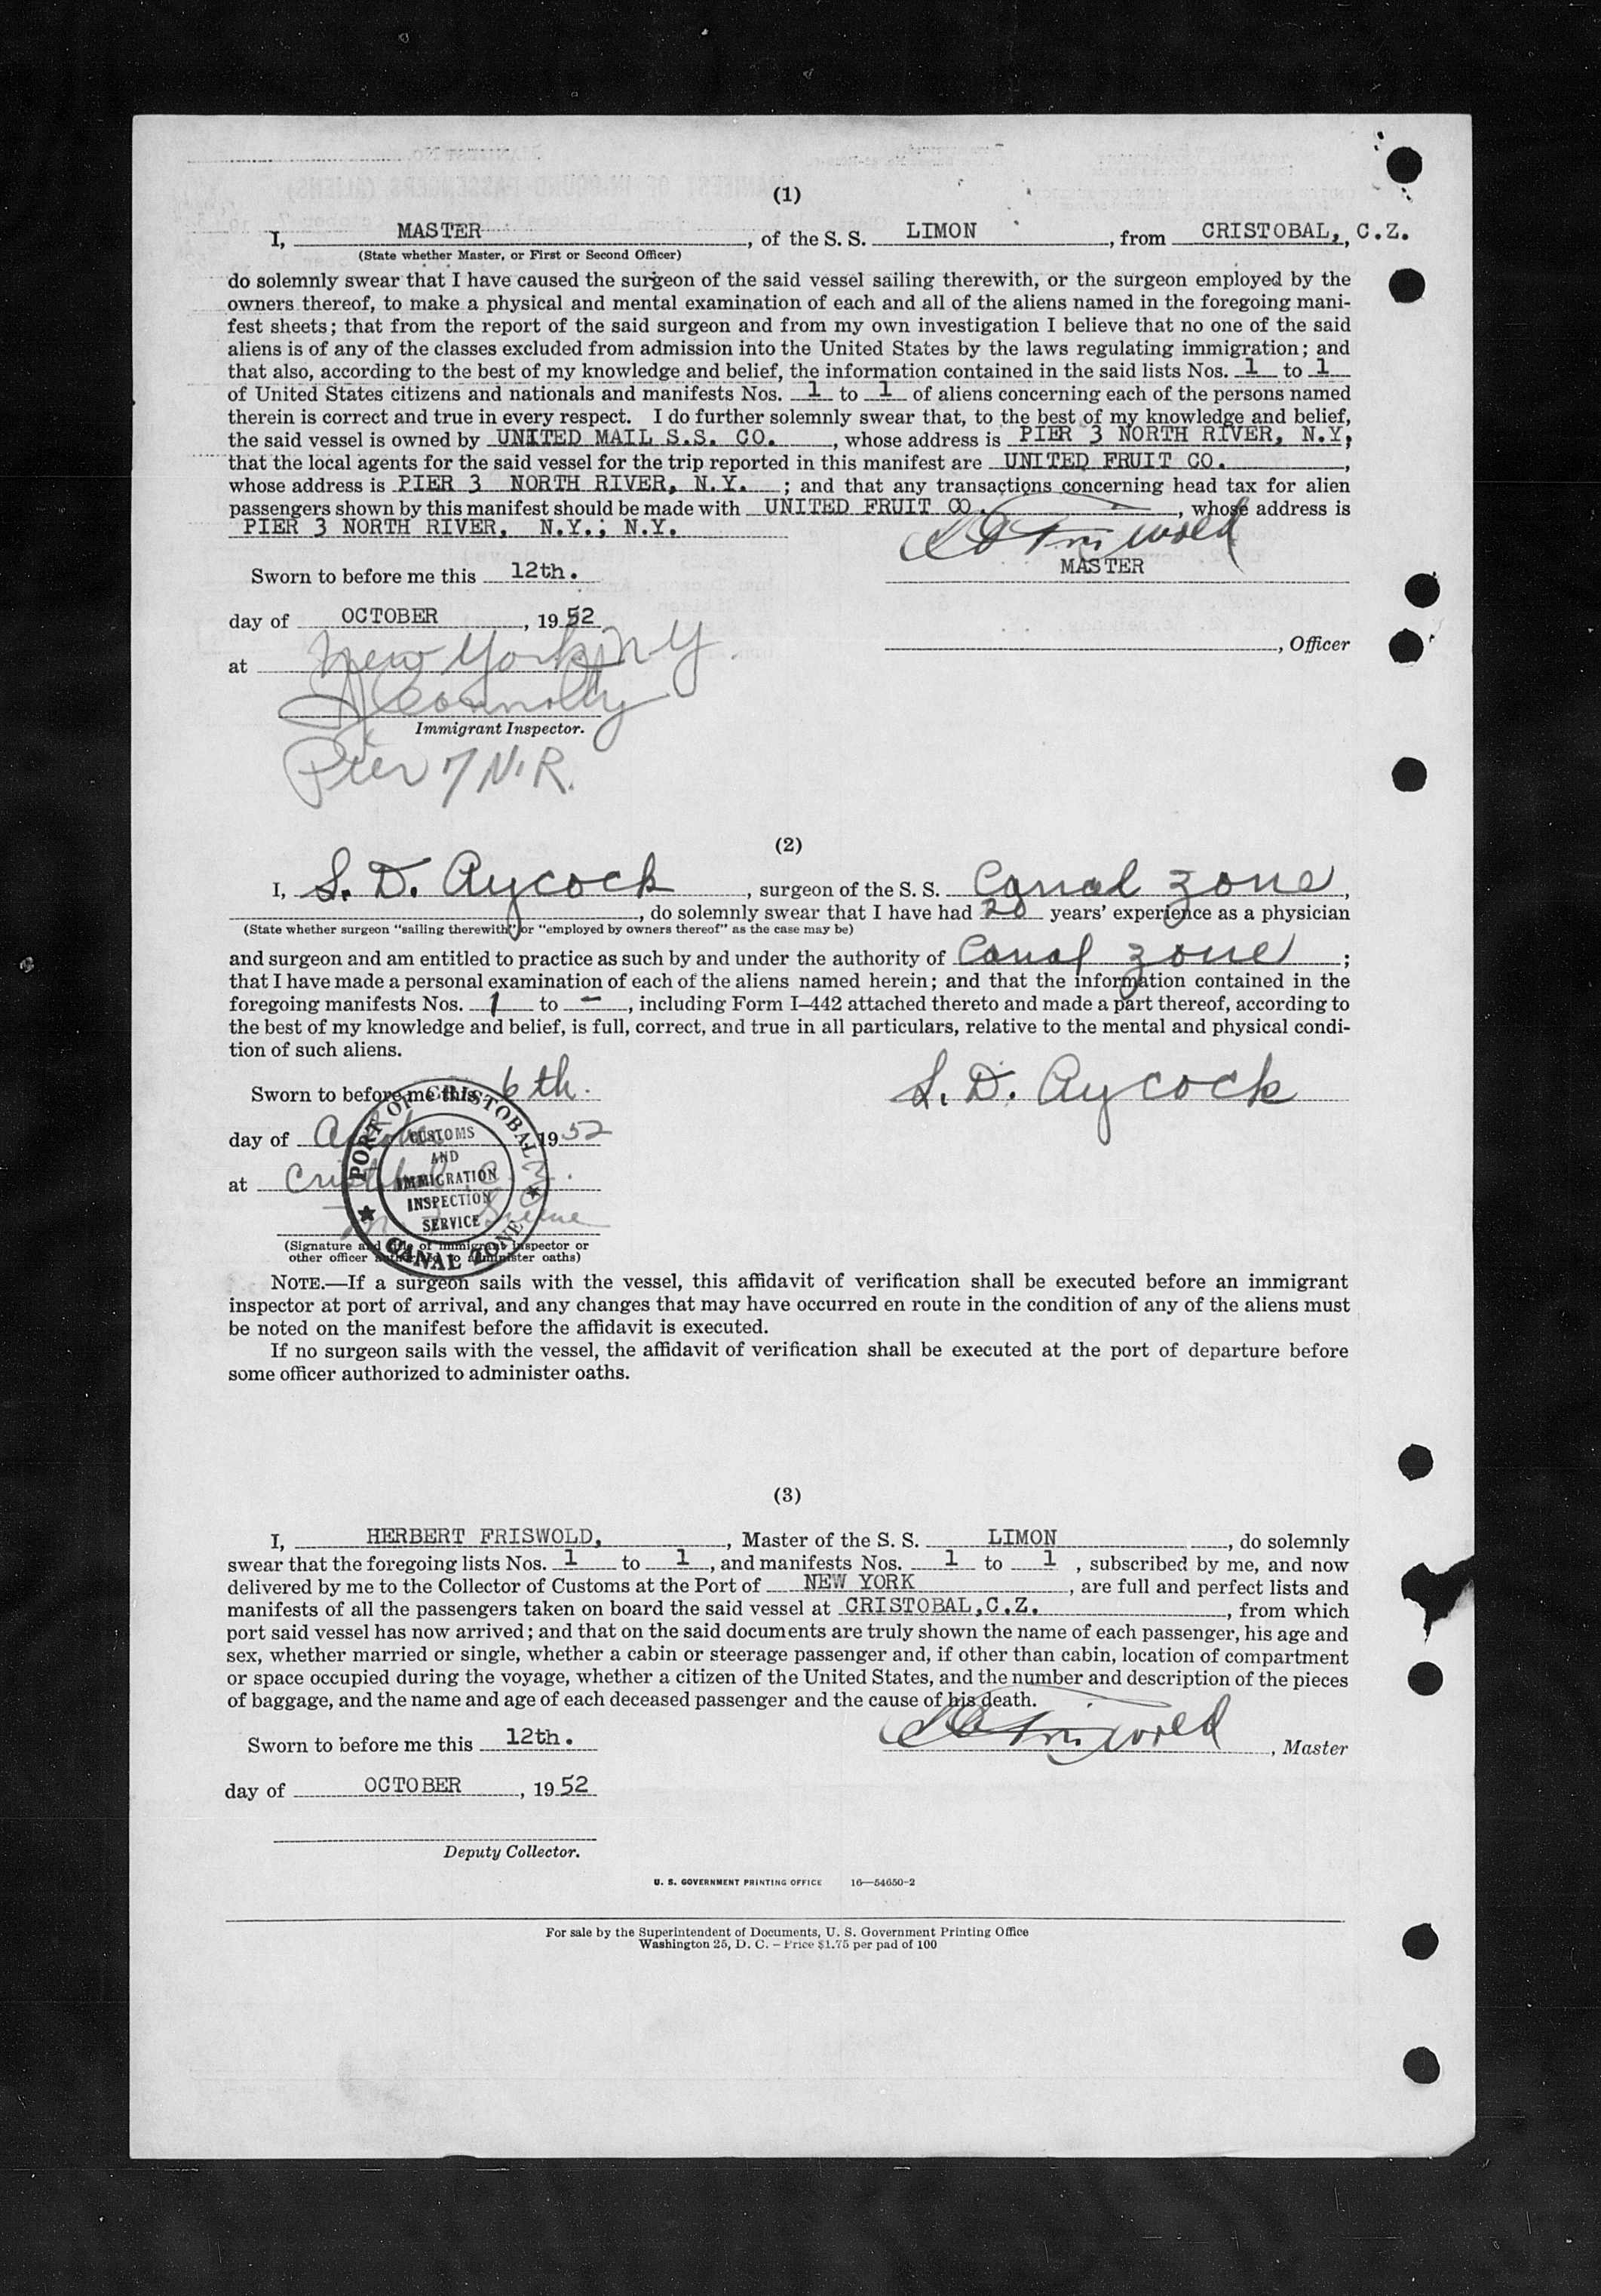 (1)
I, MASTER, of the S. S. LIMON, from CRISTOBAL, C.Z.
(State whether Master, or First or Second Officer)
do solemnly swear that I have caused the surgeon of the said vessel sailing therewith, or the surgeon employed by the
owners thereof, to make a physical and mental examination of each and all of the aliens named in the foregoing mani-
fest sheets; that from the report of the said surgeon and from my own investigation I believe that no one of the said
aliens is of any of the classes excluded from admission into the United States by the laws regulating immigration; and
that also, according to the best of my knowledge and belief, the information contained in the said lists Nos. 1 to 1
of United States citizens and nationals and manifests Nos. 1 to 1 of aliens concerning each of the persons named
therein is correct and true in every respect. I do further solemnly swear that, to the best of my knowledge and belief,
the said vessel is owned by UNITED MAIL S.S. CO., whose address is PIER 3 NORTH RIVER, N.Y;
that the local agents for the said vessel for the trip reported in this manifest are UNITED FRUIT CO.,
whose address is PIER 3 NORTH RIVER, N.Y.; and that any transactions concerning head tax for alien
passengers shown by this manifest should be made with UNITED FRUIT CO., whose address is
PIER 3 NORTH RIVER, N.Y.; N.Y.
Friswold
MASTER
Sworn to before me this 12th.
day of OCTOBER, 1952
, Officer
at New York, N Y.
Connolly
Immigrant Inspector.
Pier 7 N.R.
(2)
I, S. D. Aycock, surgeon of the S. S. Canal Zone,
, do solemnly swear that I have had 20 years' experience as a physician
(State whether surgeon "sailing therewith" or "employed by owners thereof" as the case may be)
and surgeon and am entitled to practice as such by and under the authority of Canal Zone;
that I have made a personal examination of each of the aliens named herein; and that the information contained in the
foregoing manifests Nos. 1 to –, including Form I–442 attached thereto and made a part thereof, according to
the best of my knowledge and belief, is full, correct, and true in all particulars, relative to the mental and physical condi-
tion of such aliens.
Sworn to before me this 6th.
S. D. Aycock
day of 1952
at Cristobal, C. Z.
(Signature and title of immigrant inspector or
other officer authorized to administer oaths)
PORT OF CRISTOBAL
CUSTOMS
AND
IMMIGRATION
INSPECTION
SERVICE
CANAL ZONE
NOTE.—If a surgeon sails with the vessel, this affidavit of verification shall be executed before an immigrant
inspector at port of arrival, and any changes that may have occurred en route in the condition of any of the aliens must
be noted on the manifest before the affidavit is executed.
If no surgeon sails with the vessel, the affidavit of verification shall be executed at the port of departure before
some officer authorized to administer oaths.
(3)
I, HERBERT FRISWOLD, , Master of the S. S. LIMON, do solemnly
swear that the foregoing lists Nos. 1 to 1, and manifests Nos. 1 to 1, subscribed by me, and now
delivered by me to the Collector of Customs at the Port of NEW YORK, are full and perfect lists and
manifests of all the passengers taken on board the said vessel at CRISTOBAL,C.Z., from which
port said vessel has now arrived; and that on the said documents are truly shown the name of each passenger, his age and
sex, whether married or single, whether a cabin or steerage passenger and, if other than cabin, location of compartment
or space occupied during the voyage, whether a citizen of the United States, and the number and description of the pieces
of baggage, and the name and age of each deceased passenger and the cause of his death.
Friswold, Master
Sworn to before me this 12th.
day of OCTOBER, 1952
Deputy Collector.
U. S. GOVERNMENT PRINTING OFFICE 16—54650-2
For sale by the Superintendent of Documents, U. S. Government Printing Office
Washington 25, D. C. – Price $1.75 per pad of 100